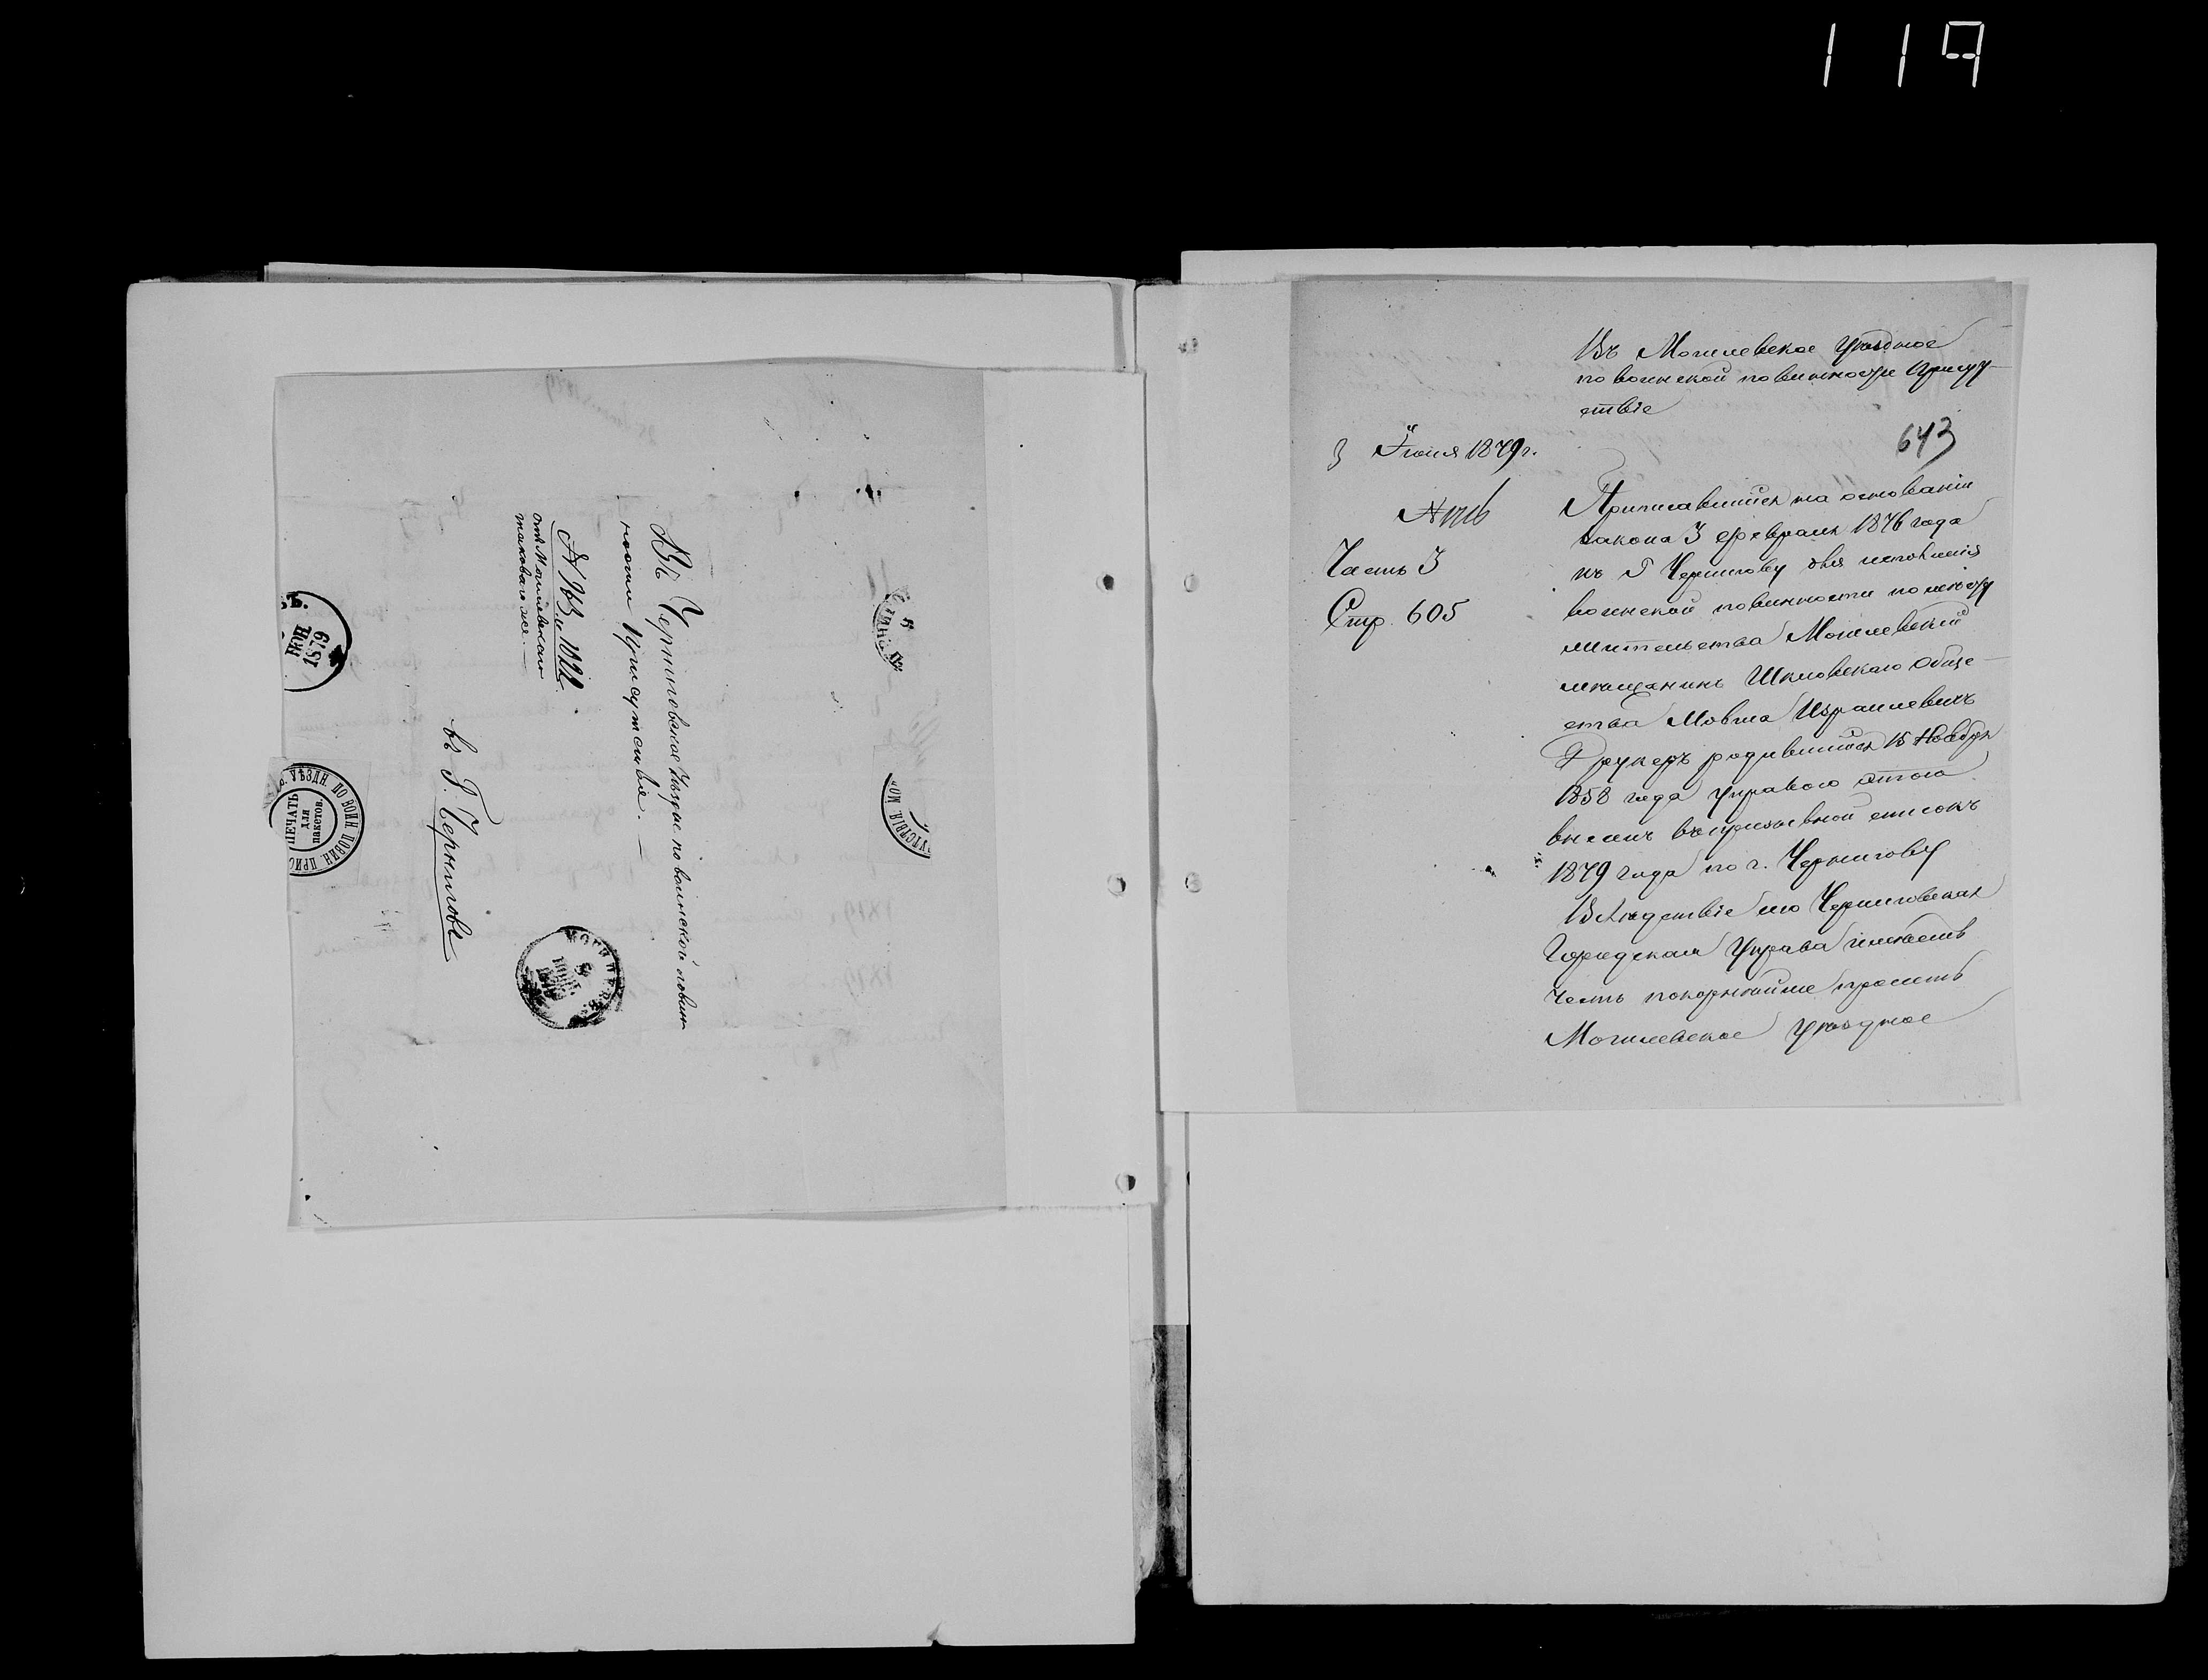 119
Въ Черниговское Уѣздное по воинской повин-
ности Присутствіе. —
№ 163 и 1822.
отъ Могилевскаго
таковаго же. —
въ Г. Черниговѣ
ІЮН.
1879
УѢЗДН. ПО ВОИН. ПОВИН. ПРИС
ПЕЧАТЬ
для
пакетов.
МОГИЛЕВЪ
Въ Могилевское Уѣздное
по воинской повинности Присут-
ствіе
643
3 Іюня 1879 г.
Часть 3
Стр. 605
Приписавшійся на основаніи
закона 3 февраля 1876 года
къ Г Чернигову для исполненія
воинской повинности по мѣсту
жительства Могилевскій
мѣщанинъ Шкловскаго Обще-
ства Мовша Израилевичъ
родившійся 15 Ноября
1858 года Управою этою
внесенъ въ призывной списокъ
1879 года по г. Чернигову
Вслѣдствіе сего Черниговская
Городская Управа имѣетъ
честь покорнѣйше просить
Могилевское Уѣздное